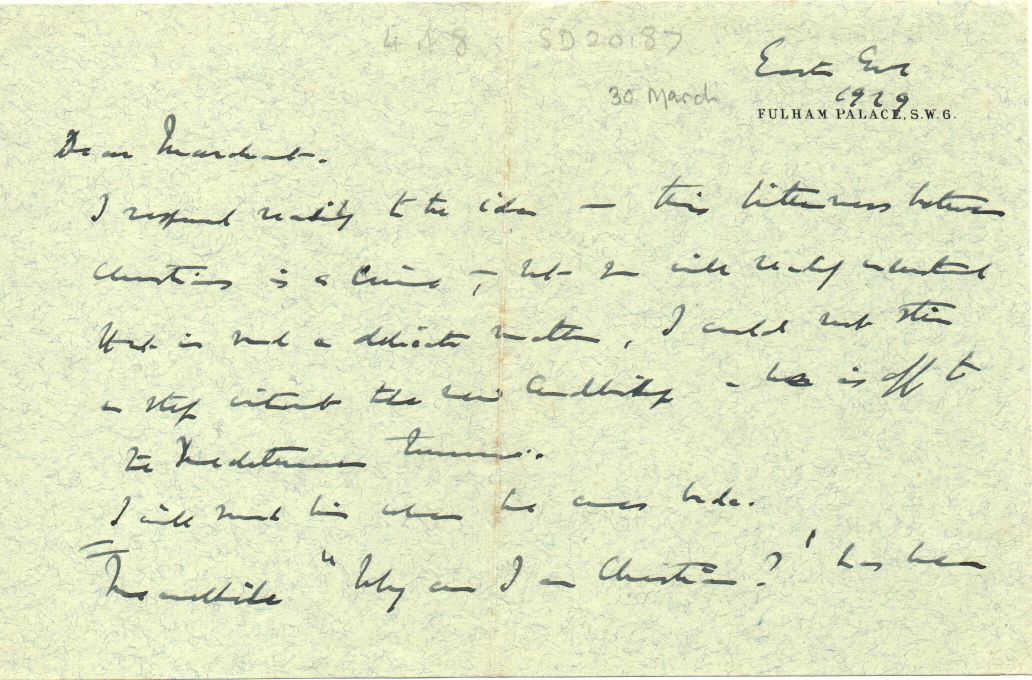 4 of 8 SD20.87
Easter Eve
30 March 1929
FULHAM PALACE, S.W.6.
Dear Marchant.
I respond readily to the idea — this bitterness between
Christians is a crime —, but you will readily understand
that in such a delicate matter, I could not stir
a step without the new Cantuar — he is off to
the Mediterranean
I will send him when he comes back.
Meanwhile "Why am I a Christian?" has been